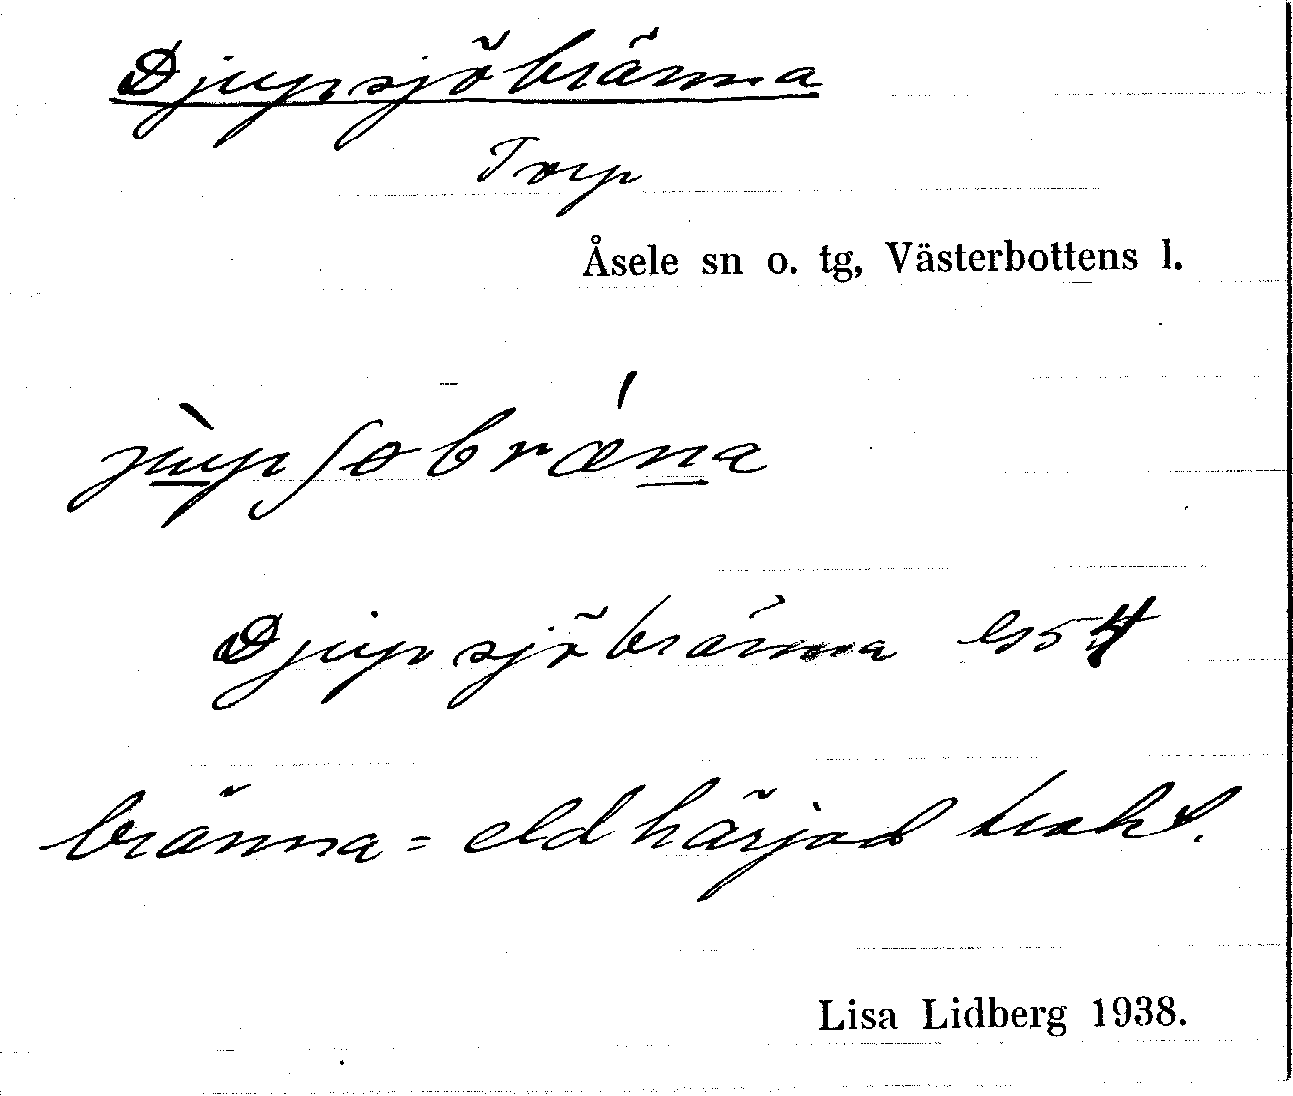 Djupsjöbränna
Torp
Åsele sn o. tg, Västerbottens l.
Djupsjöbränna 54
bränna = eldhärjad trakt.
Lisa Lidberg 1938.